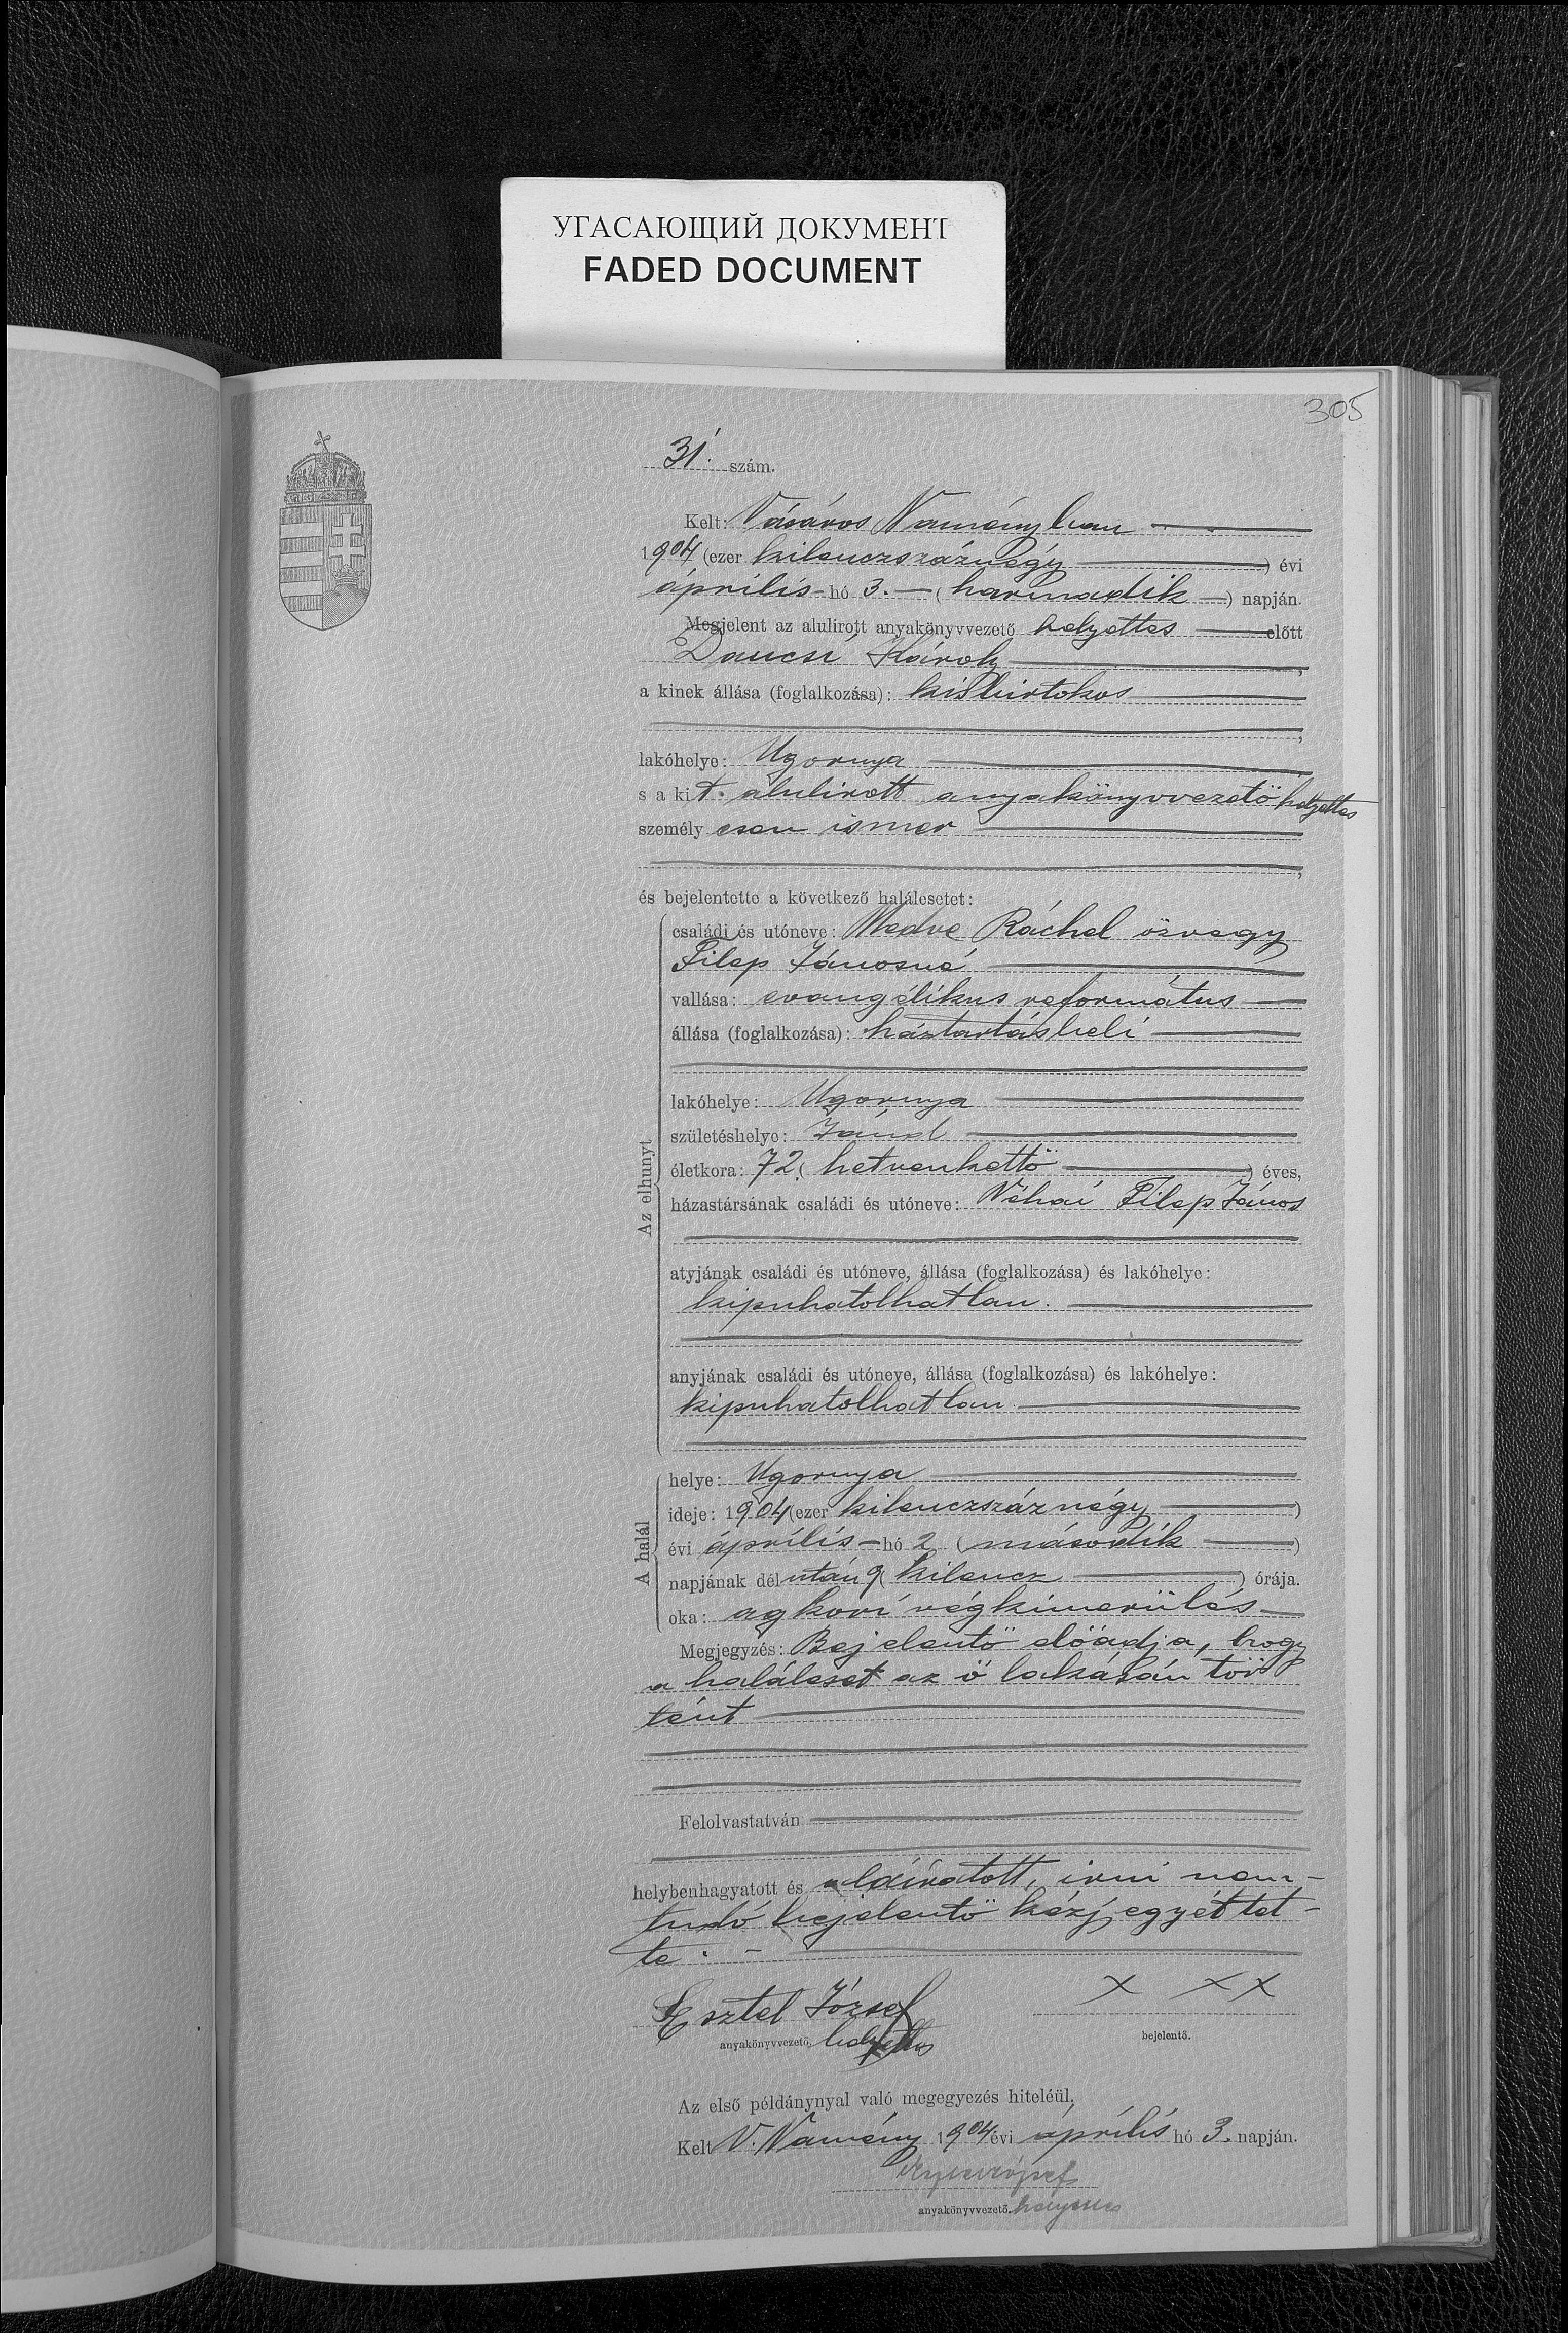 УГАСАЮЩИЙ ДОКУМЕНТ
FADED DOCUMENT
305
31. szám.
Kelt: Vásáros Naményban
1904 (ezer kilenczszáznégy) évi
április hó 3. (harmadik) napján.
Megjelent az alulirott anyakönyvvezető helyettes előtt
Dancsi Károly,
a kinek állása (foglalkozása): kisbirtokos
,
lakóhelye: Ugornya
s a kit alulirott anyakönyvvezető helyettes
személyesen ismer
,
és bejelentette a következő halálesetet:
Az elhunyt
családi és utóneve: Medve Ráchel özvegy
Filep Jánosné
vallása: evangélikus református
állása (foglalkozása): háztartásbeli
lakóhelye: Ugornya
születéshelye: Jánd
életkora: 72 (hetvenkettő) éves,
házastársának családi és utóneve: Néhai Filep János
atyjának családi és utóneve, állása (foglalkozása) és lakóhelye:
kipuhatolhatlan.
anyjának családi és utóneve, állása (foglalkozása) és lakóhelye:
kipuhatolhatlan
A halál
helye: Ugornya
ideje: 1904 (ezer kilenczszáznégy)
évi április hó 2 (második)
napjának délután 9 (kilencz) órája.
oka: agkori végkimerülés
Megjegyzés: Bejelentő előadja, hogy
a haláleset az ő lakásán tör
tént
Felolvastatván
helybenhagyatott és aláíratott, irni nem-
tudó bejelentő kézjegyét tet-
te. -
Esztel József
anyakönyvvezető. helyettes
x xx
bejelentő.
Az első példánynyal való megegyezés hiteléül,
Kelt V. Namény 1904 évi április hó 3. napján.
anyakönyvvezető. helyettes